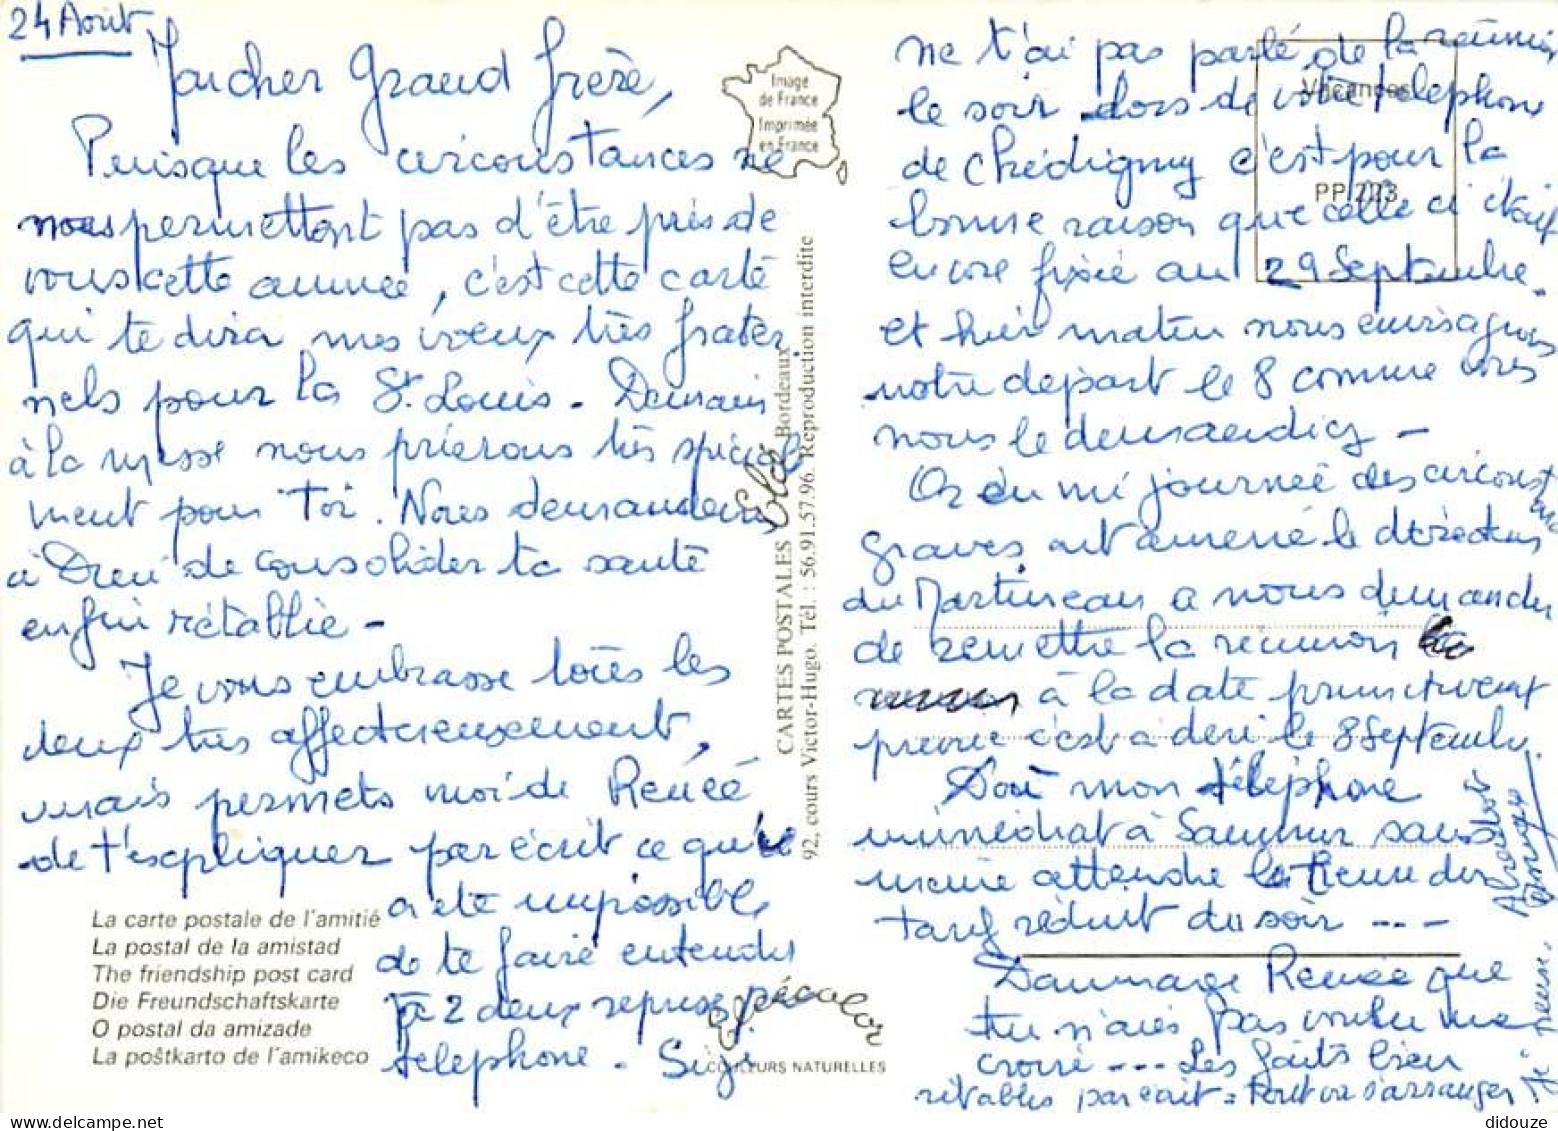 24 Août
Mon cher Grand frère,
Puisque les circonstances ne
nous permettent pas d'être près de
vous cette année, c'est cette carte
qui te dira mes vœux très frater
nels pour la St. Louis - Demain
à la messe nous prierons très spéciale
ment pour Toi. Nous demanderons
à Dieu de consolider ta santé
enfin rétablie -
Je vous embrasse tous les
deux très affectueusement,
mais permets moi de Renée
de t'expliquer par écrit ce qu'il
a été impossible
de te faire entendre
à 2 deux reprises par
telephone. Si je
ne t'ai pas parlé de la réunion
le soir lors de votre telephone
de Chédigny c'est pour la
bonne raison que celle ci était
encore fixée au 29 Septembre.
et hier matin nous envisagions
notre depart le 8 comme vous
nous le demandiez -
Or en mi journée des circonstances
graves ont amené le directeur
du Martineau a nous demander
de remettre la réunion
à la date primitivement
prevue c'est a dire le 8 Septembre.
D'où mon téléphone
immédiat à Saumur sans
même attendre l'heure du
tarif réduit du soir ---
Dommage Renée que
tu n'aies pas voulu me
croire --- Les faits bien
rétablis par écrit = tout va s'arranger.
Image
de France
Imprimée
en France
Vacances
PP 223
CARTES POSTALES Elcé Bordeaux
92, cours Victor-Hugo. Tél. : 56.91.57.96. Reproduction interdite
La carte postale de l'amitié
La postal de la amistad
The friendship post card
Die Freundschaftskarte
O postal da amizade
La poŝtkarto de l'amikeco
Elcécolor
COULEURS NATURELLES
didouze